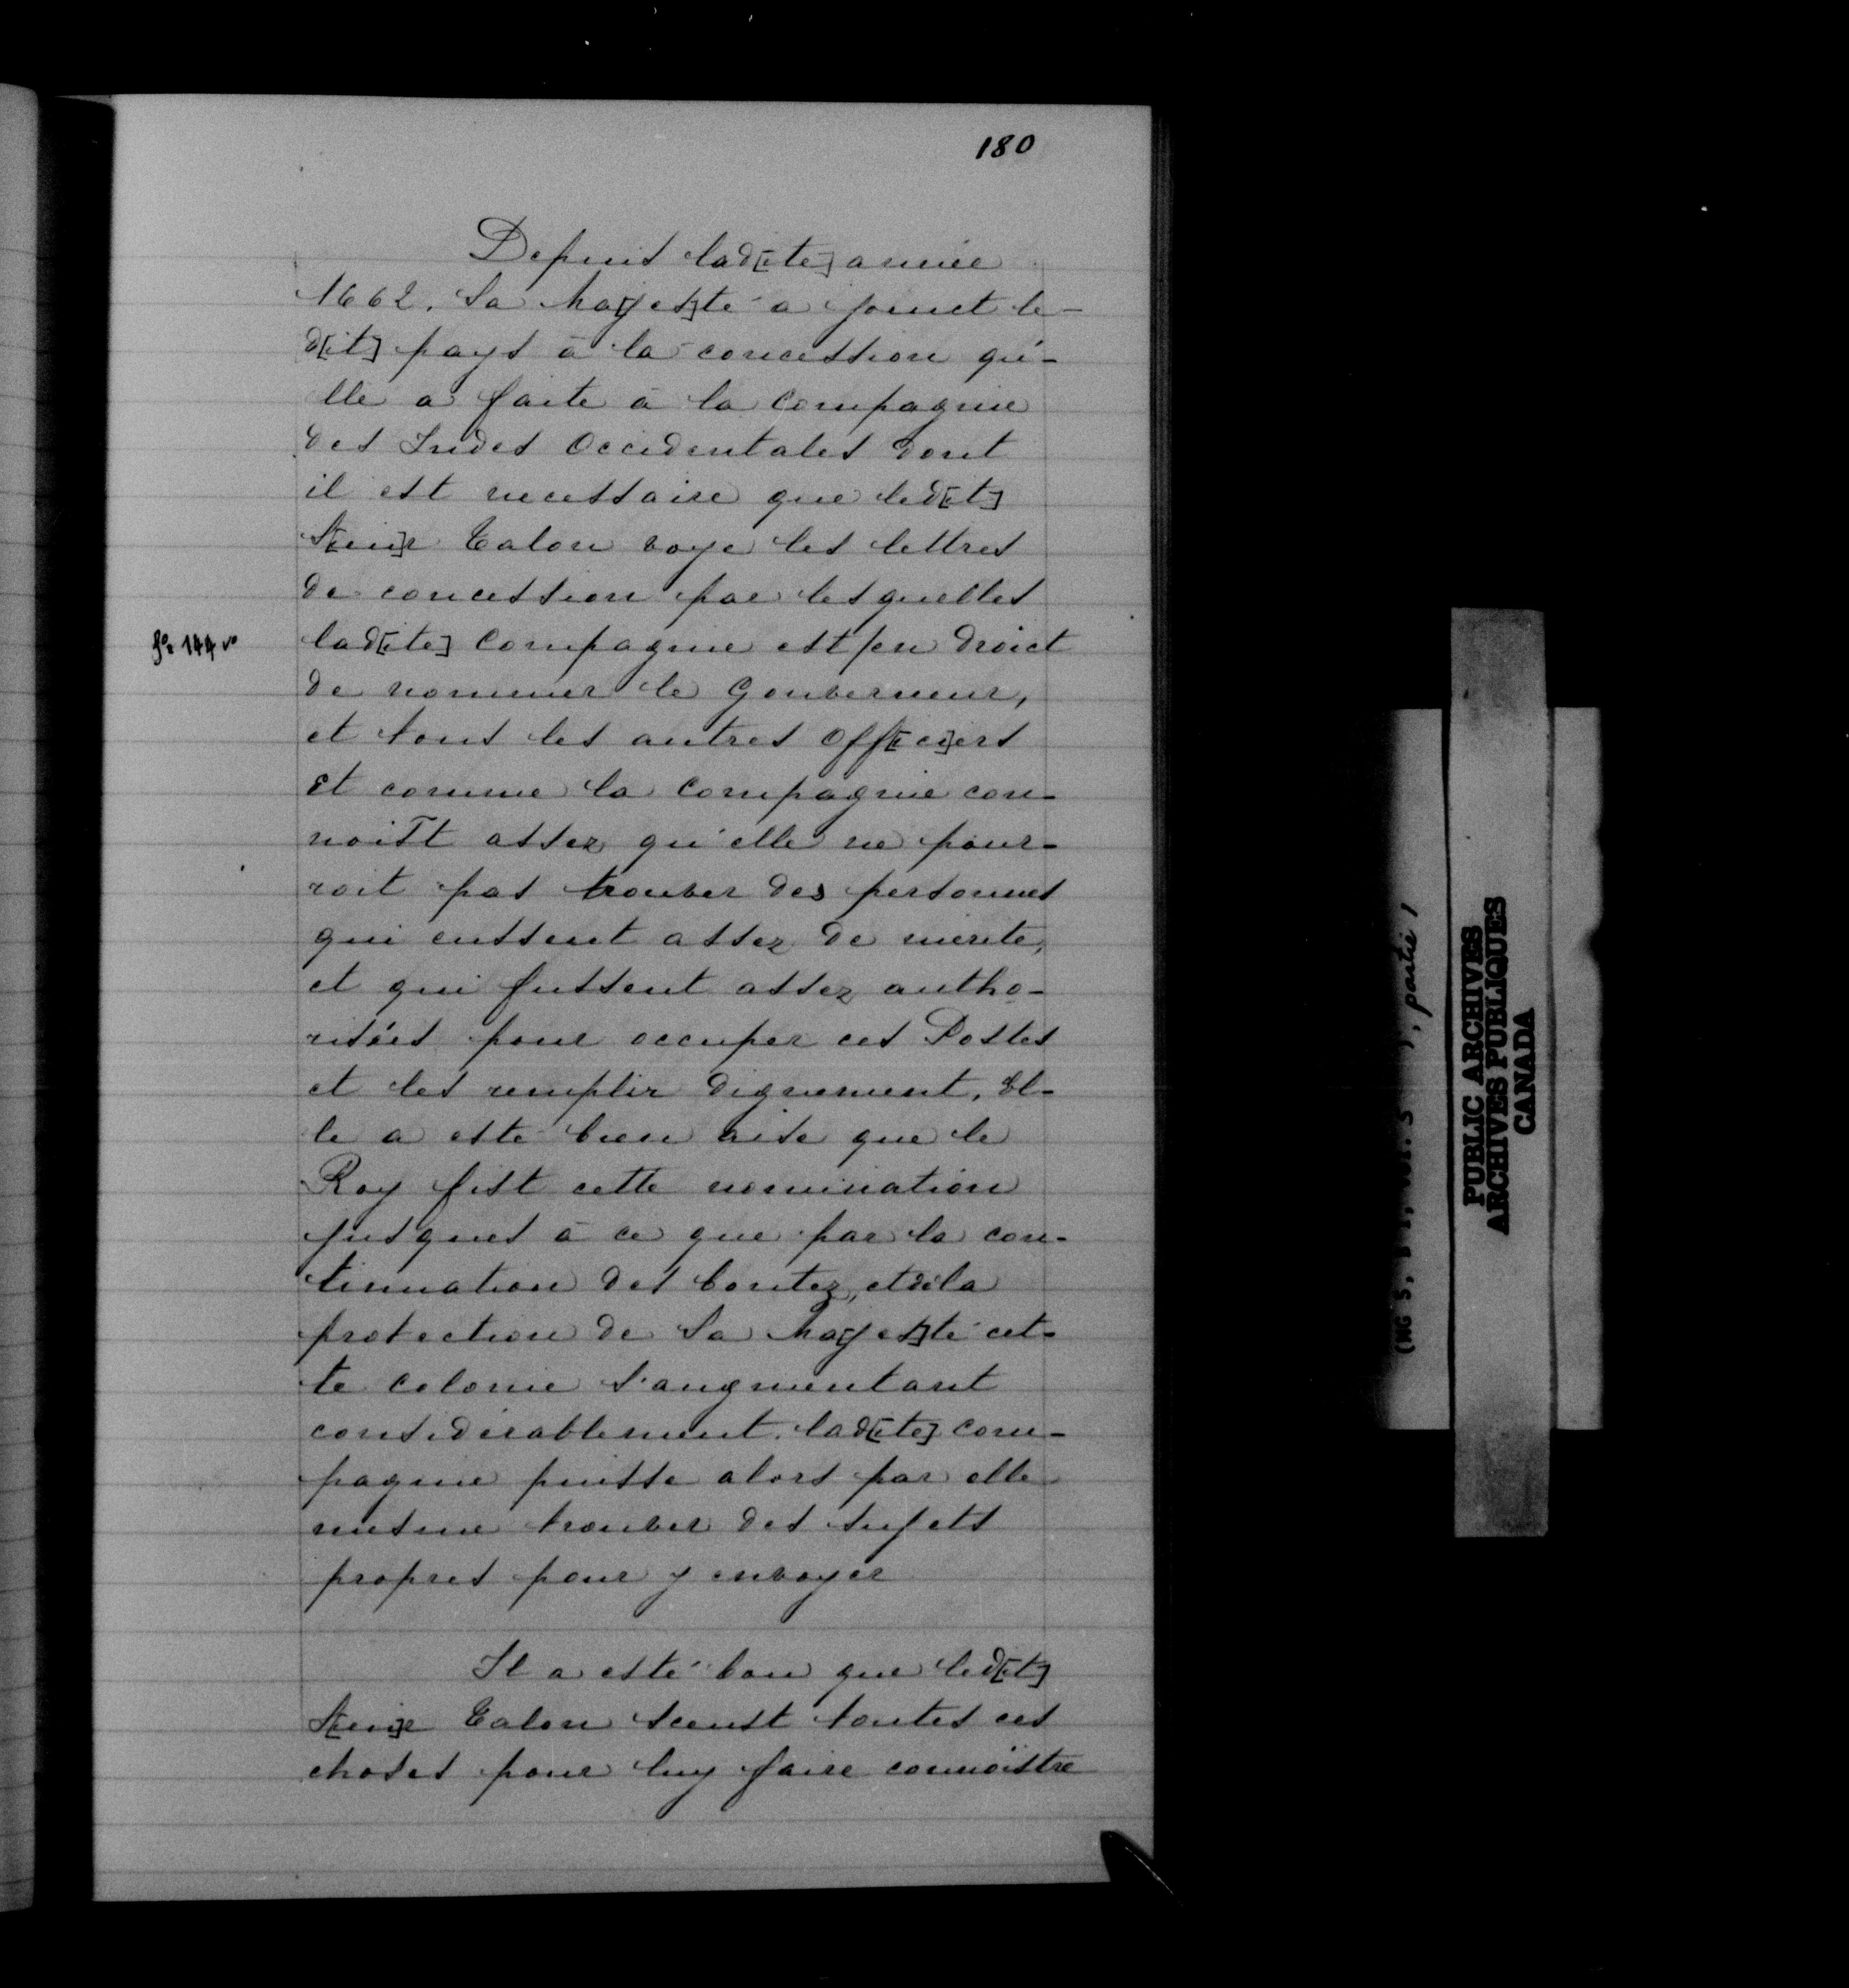 180
Depuis lad[ite] année
1662. Sa Ma[jes]té a joinct le-
d[it] pays à la concession qu'e-
lle a faite à la Compagnie
des Indes Occidentales dont
il est necessaire que led[it]
S[ieu]r Talon voye les lettres
de concession par lesquelles
fo: 144 vo
lad[ite] Compagnie est en droict
de nommer le Gouverneur,
et tous les autres Off[ici]ers
Et comme la Compagnie con-
noist assez qu'elle ne pour-
roit pas trouver des personnes
qui eussent assez de merite,
et qui fussent assez autho-
risées pour occuper ces Postes
et les remplir dignement, El-
le a esté bien aise que le
Roy fist cette nomination
jusques à ce que par la con-
tinuation des bontez, et de la
protection de Sa Ma[jes]té cet-
te colonie s'augmentant
considerablement. lad[ite] com-
pagnie puisse alors par elle
mesme trouver des sujets
propres pour y envoyer
Il a esté bon que led[it]
S[ieu]r Talon sceust toutes ces
choses pour luy faire connoistre
(MG 5, B 1, vol. 5 ), partie 1
PUBLIC ARCHIVES
ARCHIVES PUBLIQUES
CANADA